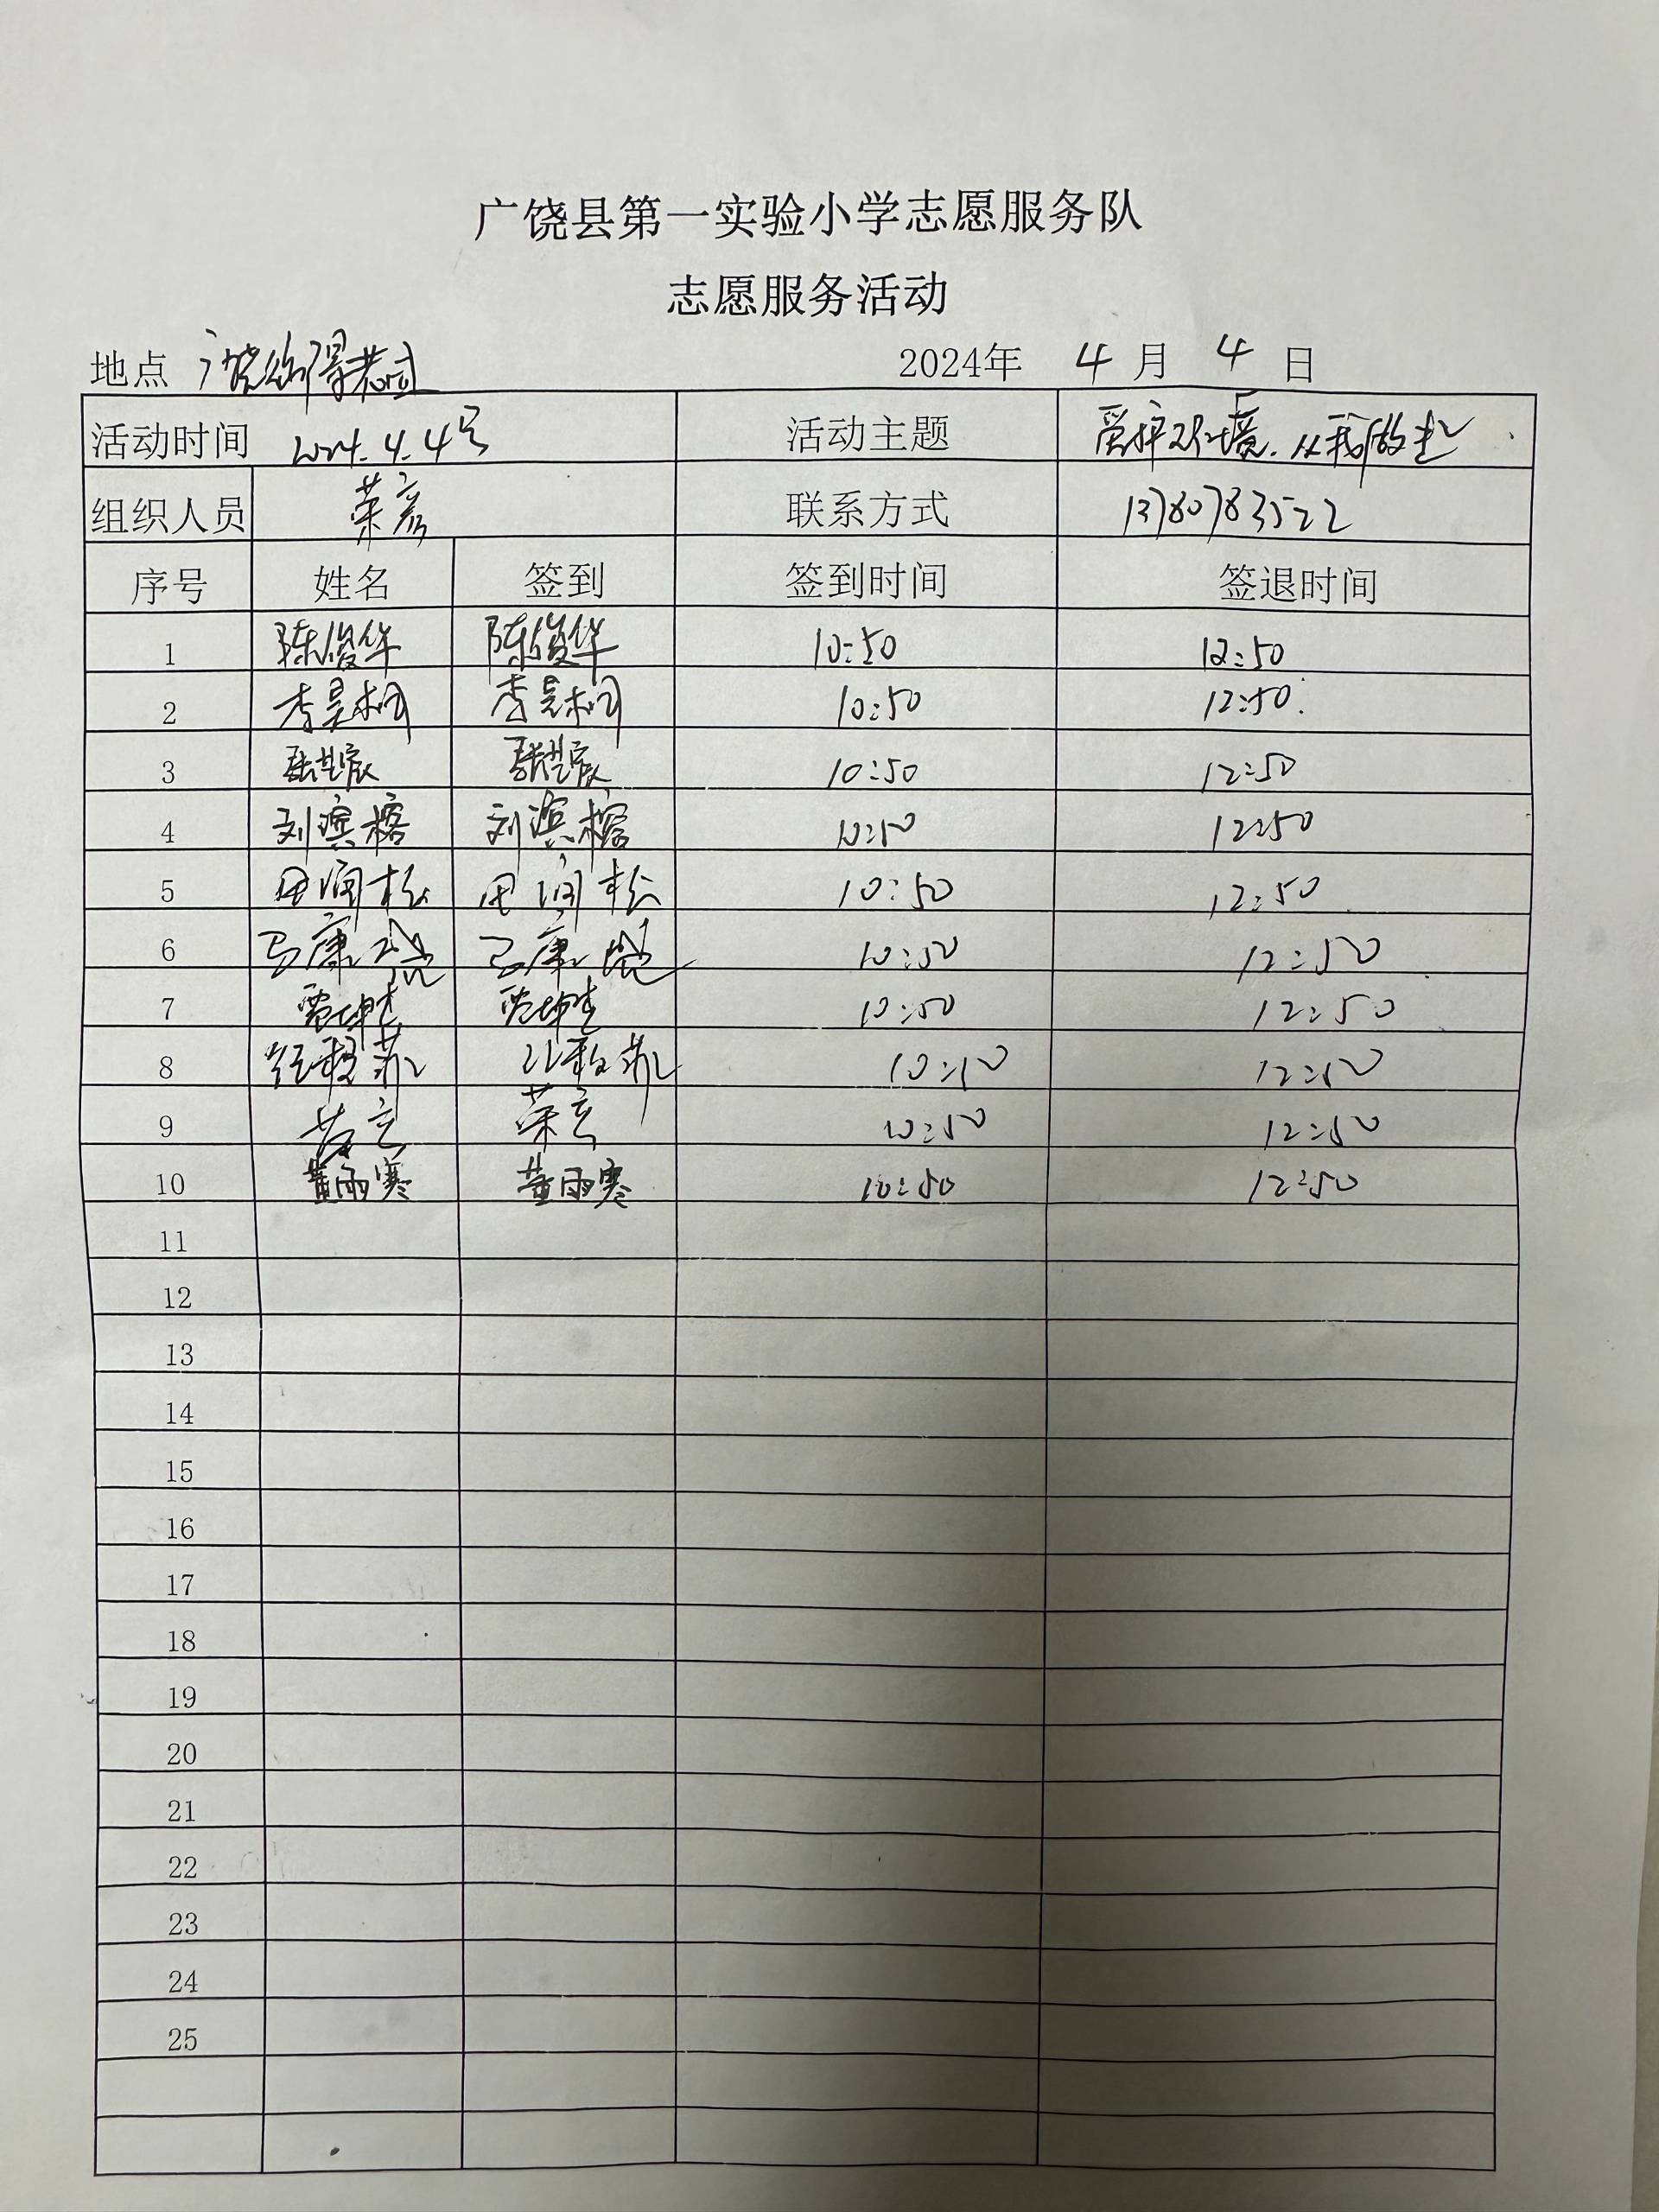 广饶县第一实验小学志愿服务队
志愿服务活动
地点 广饶 2024年 4 月 4 日
活动时间 2024.4.4号 活动主题 爱护环境.从我做起
组织人员 荣彦 联系方式 13780783522
序号 姓名 签到 签到时间 签退时间
1 陈俊华 陈俊华 10:50 12:50
2 李昊桐 李昊桐 10:50 12:50
3 10:50 12:50
4 刘滨榕 刘滨榕 10:50 12:50
5 田润松 田润松 10:50 12:50
6 马康 马康 10:50 12:50
7 贾坤 贾坤 10:50 12:50
8 10:50 12:50
9 荣彦 荣彦 10:50 12:50
10 董雨寒 董雨寒 10:50 12:50
11
12
13
14
15
16
17
18
19
20
21
22
23
24
25